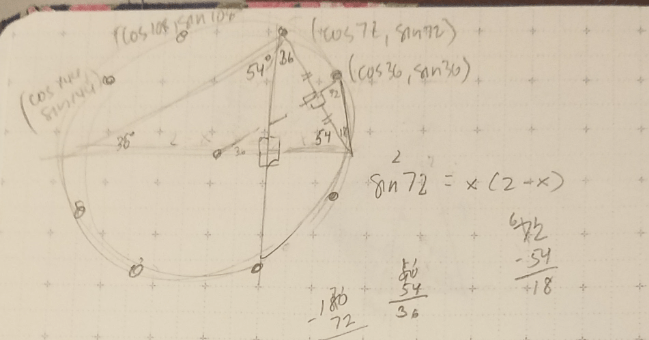 (cos108, sin108
(cos72, sin72)
(cos36, sin36)
(cos144
sin144)
54° 36
72
36°
54 18
36
sin²72 = x(2-x)
72
-54
18
90
54
36
180
-72